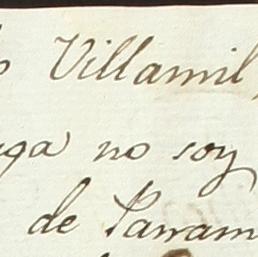 Villamil,
no soy
de Parram